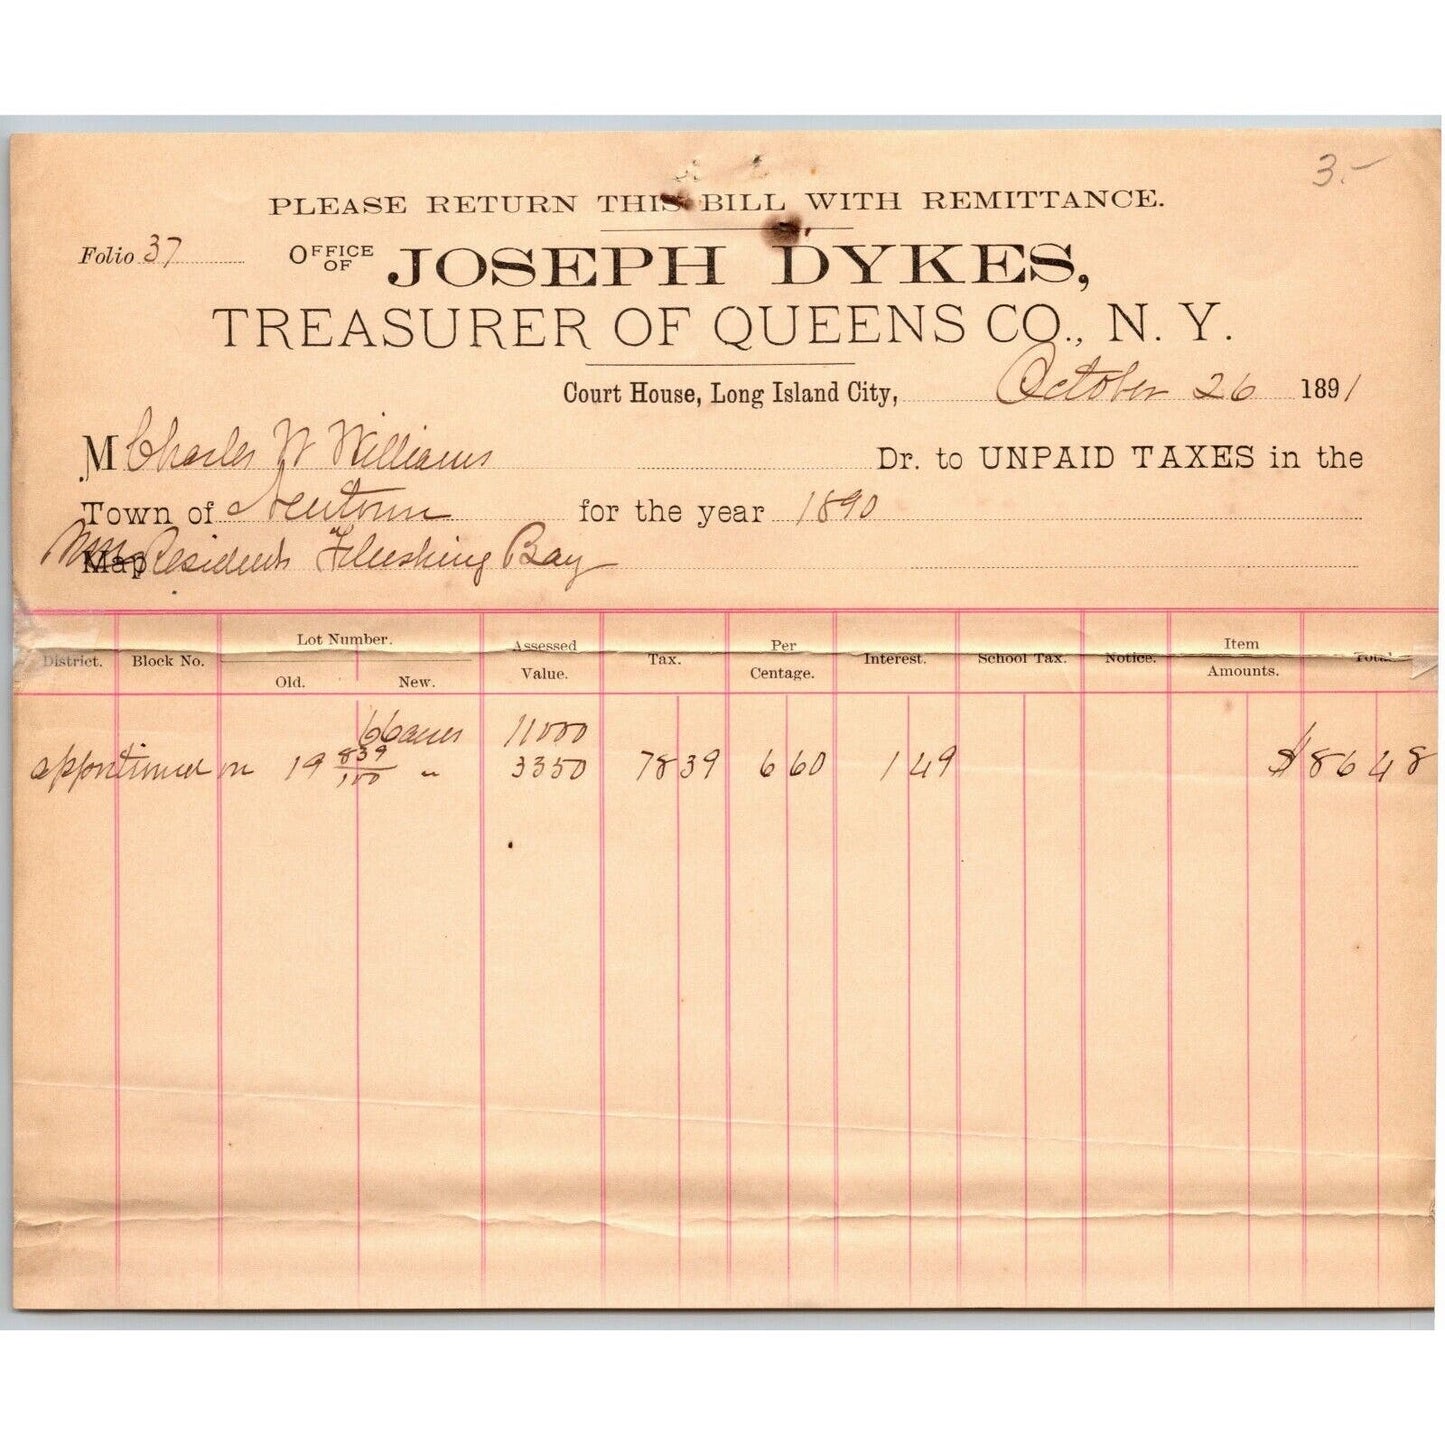 3.-
PLEASE RETURN THIS BILL WITH REMITTANCE.
Folio 37
OFFICE OF JOSEPH DYKES,
TREASURER OF QUEENS CO., N. Y.
Court House, Long Island City, October 26 1891
M Charles W Williams Dr. to UNPAID TAXES in the
Town of Newtown for the year 1890
Map Non Residents Flushing Bay
District. Block No. Lot Number. Old. New. Assessed Value. Tax. Per Centage. Interest. School Tax. Notice. Item Amounts. Total.
66 acres 11000
apportioned on 19 839/100 " 3350 78 39 6 60 1 49 $86 48